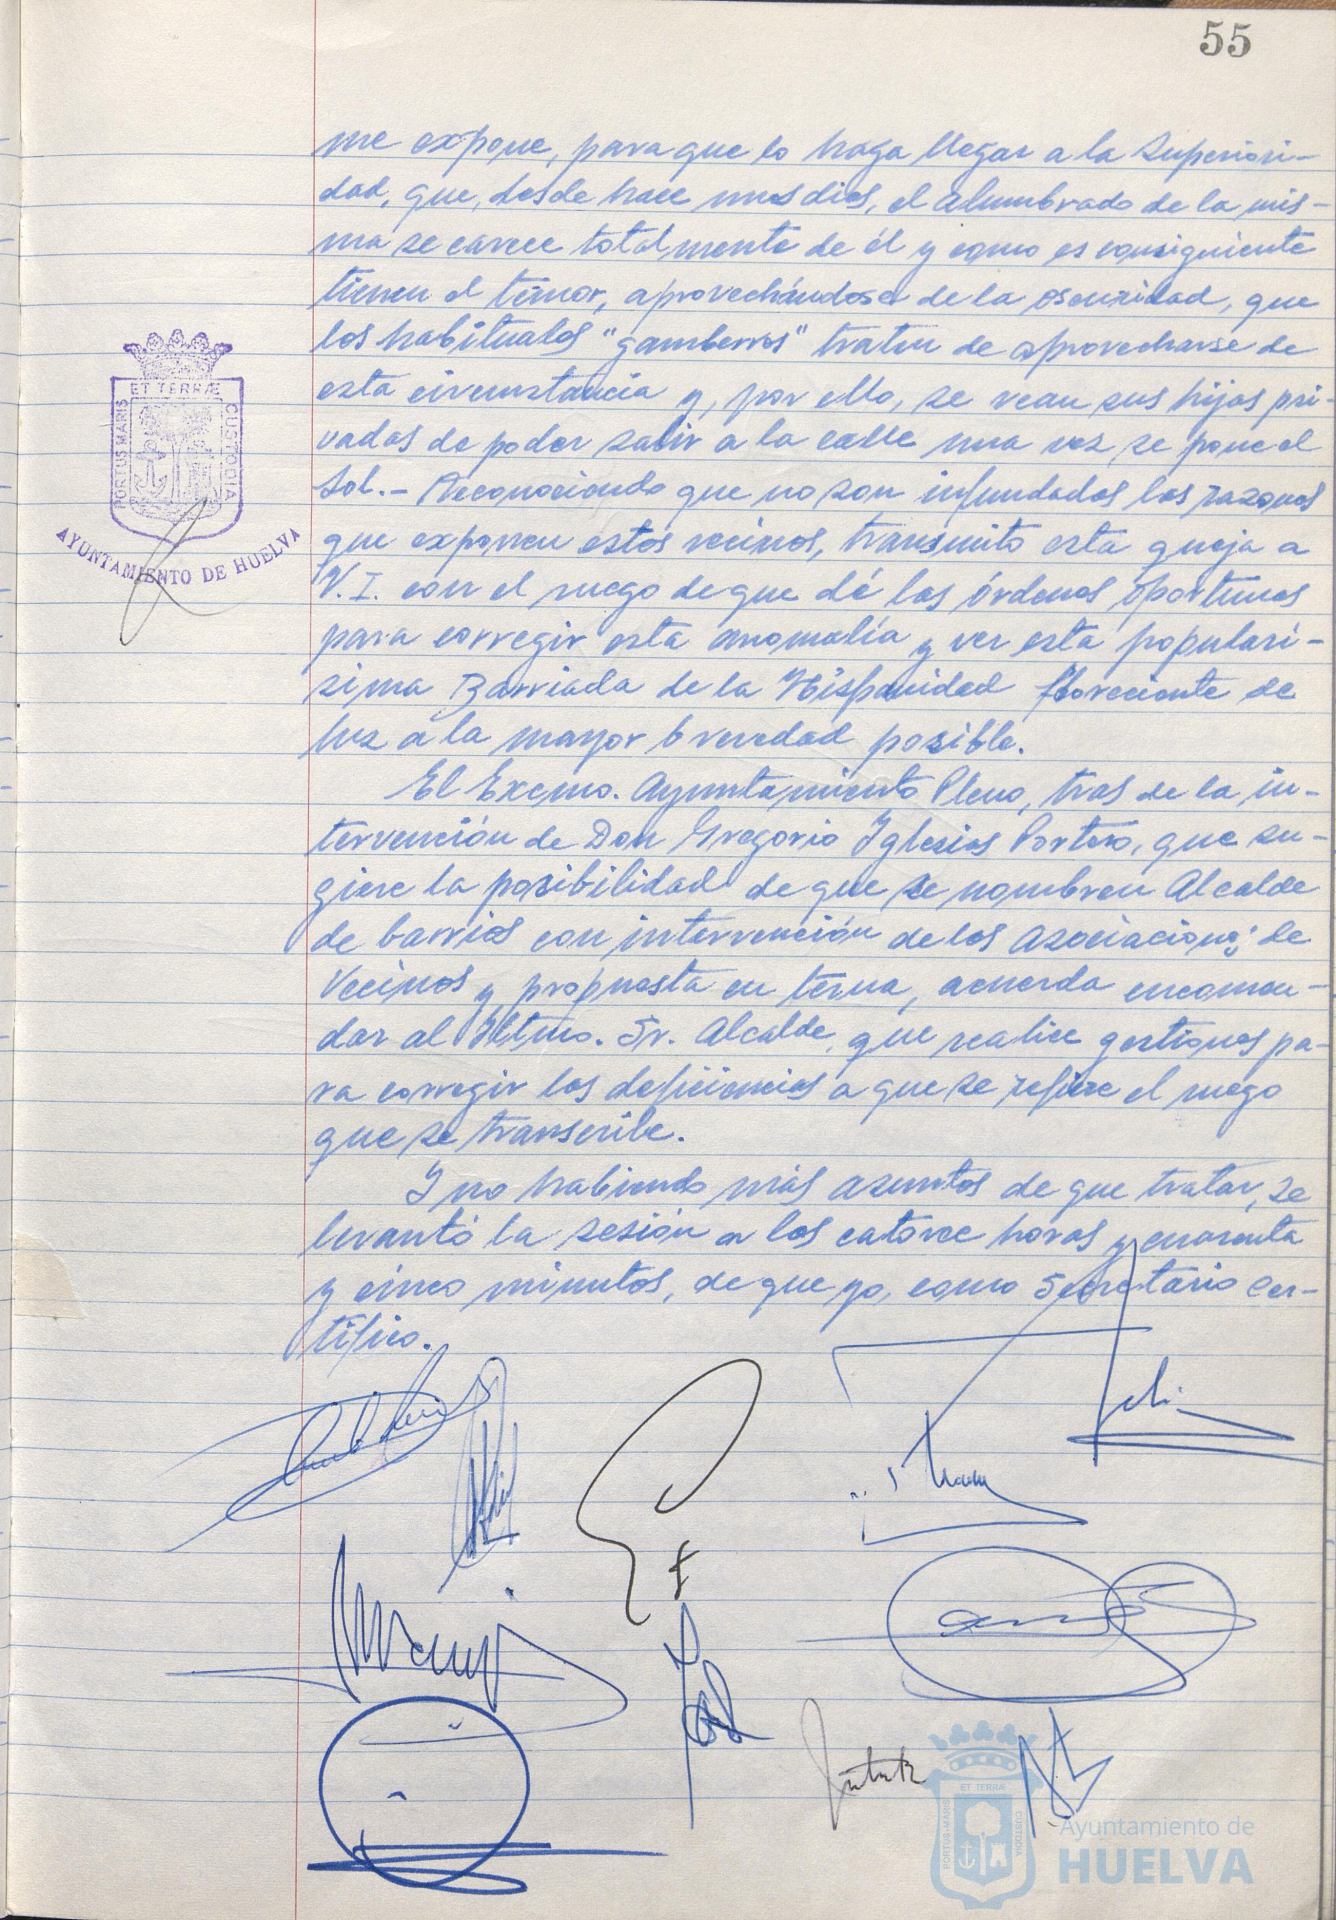 55
me expone, para que lo haga llegar a la Superiori-
dad, que, desde hace unos dias, el alumbrado de la mis-
ma se carece totalmente de él y como es consiguiente
tienen el temor, aprovechándose de la oscuridad, que
los habituales "gamberros" traten de aprovecharse de
esta circunstancia y, por ello, se vean sus hijos pri-
vados de poder salir a la calle una vez se pone el
Sol.- Reconociendo que no son infundadas las razones
que exponen estos vecinos, transmito esta queja a
V.I. con el ruego de que dé las órdenes oportunas
para corregir esta anomalía y ver esta populari-
sima Barriada de la Hispanidad floreciente de
luz a la mayor brevedad posible.
El Excmo. Ayuntamiento Pleno, tras de la in-
tervención de Don Gregorio Iglesias Portero, que su-
giere la posibilidad de que se nombren Alcalde
de barrios con intervención de las Asociaciones de
Vecinos y propuesta en terna, acuerda encomen-
dar al Iltmo. Sr. Alcalde, que realice gestiones pa-
ra corregir las deficiencias a que se refiere el ruego
que se transcribe.
Y no habiendo más asuntos de que tratar, se
levantó la sesión a las catorce horas y cuarenta
y cinco minutos, de que yo, como Secretario cer-
tifico.
ET TERRÆ
PORTUS MARIS
CUSTODIA
AYUNTAMIENTO DE HUELVA
ET TERRÆ
PORTUS MARIS
CUSTODIA
Ayuntamiento de
HUELVA